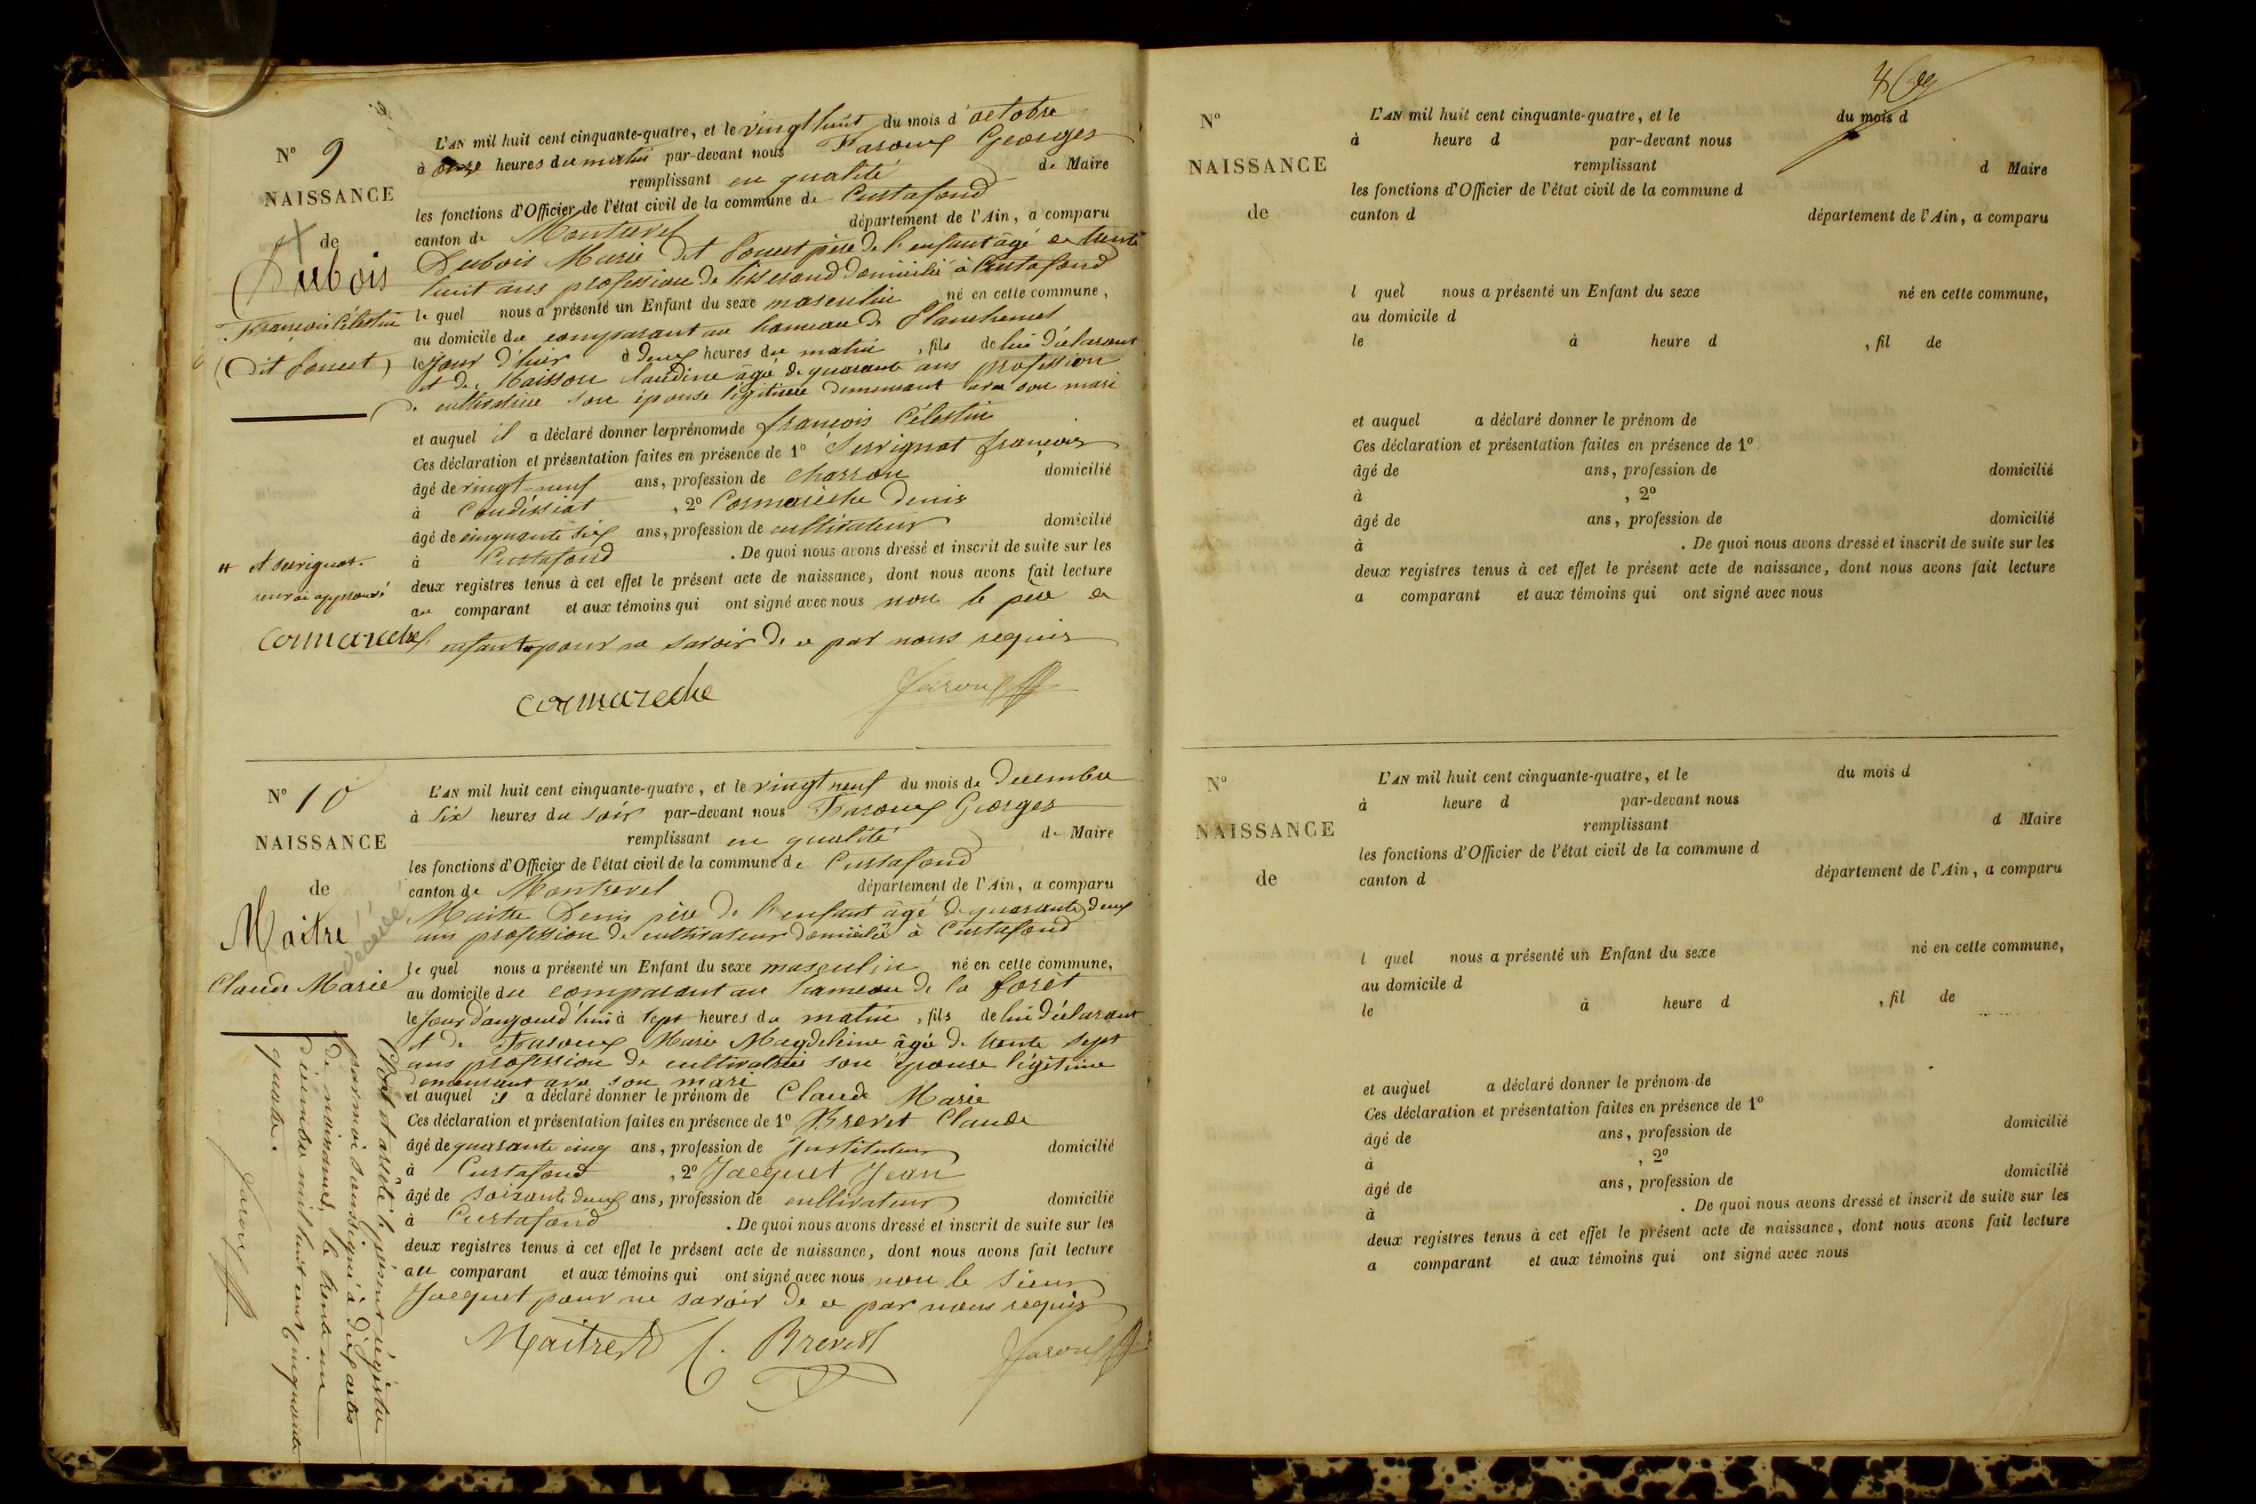 N° 9
NAISSANCE
de
Dubois
François Célestin
(Dit Poncet)
L'AN mil huit cent cinquante-quatre, et le vingt huit du mois d'octobre
à onze heures du matin par-devant nous Faroux Georges
remplissant en qualité de Maire
les fonctions d'Officier de l'état civil de la commune de Curtafond
canton de Montrevel département de l'Ain, a comparu
Dubois Marie dit Poncet père de l'enfant âgé de trente
huit ans profession de tisserand domicilié à Curtafond
lequel nous a présenté un Enfant du sexe masculin né en cette commune,
au domicile du comparant au hameau de
le jour d'hier à deux heures du matin, fils de lui déclarant
et de Claudine âgée de quarante ans profession
de cultivatrice son épouse légitime demeurant avec son mari
et auquel il a déclaré donner les prénoms de françois Célestin
Ces déclaration et présentation faites en présence de 1° Servignat françois
âgé de vingt-neuf ans, profession de charron domicilié
à Condéssiat, 2° Cormarèche Denis
âgé de cinquante six ans, profession de cultivateur domicilié
à Curtafond. De quoi nous avons dressé et inscrit de suite sur les
deux registres tenus à cet effet le présent acte de naissance, dont nous avons fait lecture
au comparant et aux témoins qui ont signé avec nous non le père de
l'enfant pour ne savoir de ce par nous requis
et servignat.
renvoi approuvé
cormareche
cormareche
Faroux
N° 10
NAISSANCE
de
Maitre
Claude Marie
décédé
L'AN mil huit cent cinquante-quatre, et le vingt neuf du mois de Decembre
à six heures du soir par-devant nous Faroux Georges
remplissant en qualité de Maire
les fonctions d'Officier de l'état civil de la commune de Curtafond
canton de Montrevel département de l'Ain, a comparu
Maitre Denis père de l'enfant âgé de quarante deux
ans profession de cultivateur domicilié à Curtafond
lequel nous a présenté un Enfant du sexe masculin né en cette commune,
au domicile du comparant au hameau de la forêt
le jour d'aujourd'hui à sept heures du matin, fils de lui déclarant
et de Faroux Marie Magdeleine âgée de trente sept
ans profession de cultivatrice son épouse légitime
demeurant avec son mari
et auquel il a déclaré donner le prénom de Claude Marie
Ces déclaration et présentation faites en présence de 1° Brevet Claude
âgé de quarante cinq ans, profession de Instituteur domicilié
à Curtafond, 2° Jacquet Jean
âgé de soixante deux ans, profession de cultivateur domicilié
à Curtafond. De quoi nous avons dressé et inscrit de suite sur les
deux registres tenus à cet effet le présent acte de naissance, dont nous avons fait lecture
au comparant et aux témoins qui ont signé avec nous non le sieur
Jacquet pour ne savoir de ce par nous requis
Maitre D C. Brevet Faroux
Clos et arrêté le présent régistre
par moi soussigné à dix actes
de naissances, le trente un
décembre mil huit cent cinquante
quatre.
Faroux
N°
NAISSANCE
de
L'AN mil huit cent cinquante-quatre, et le du mois d
à heure d par-devant nous
remplissant d Maire
les fonctions d'Officier de l'état civil de la commune d
canton d département de l'Ain, a comparu
l quel nous a présenté un Enfant du sexe né en cette commune,
au domicile d
le à heure d , fil de
et auquel a déclaré donner le prénom de
Ces déclaration et présentation faites en présence de 1°
âgé de ans, profession de domicilié
à , 2°
âgé de ans, profession de domicilié
à . De quoi nous avons dressé et inscrit de suite sur les
deux registres tenus à cet effet le présent acte de naissance, dont nous avons fait lecture
a comparant et aux témoins qui ont signé avec nous
N°
NAISSANCE
de
L'AN mil huit cent cinquante-quatre, et le du mois d
à heure d par-devant nous
remplissant d Maire
les fonctions d'Officier de l'état civil de la commune d
canton d département de l'Ain, a comparu
l quel nous a présenté un Enfant du sexe né en cette commune,
au domicile d
le à heure d , fil de
et auquel a déclaré donner le prénom de
Ces déclaration et présentation faites en présence de 1°
âgé de ans, profession de domicilié
à , 2°
âgé de ans, profession de domicilié
à . De quoi nous avons dressé et inscrit de suite sur les
deux registres tenus à cet effet le présent acte de naissance, dont nous avons fait lecture
a comparant et aux témoins qui ont signé avec nous